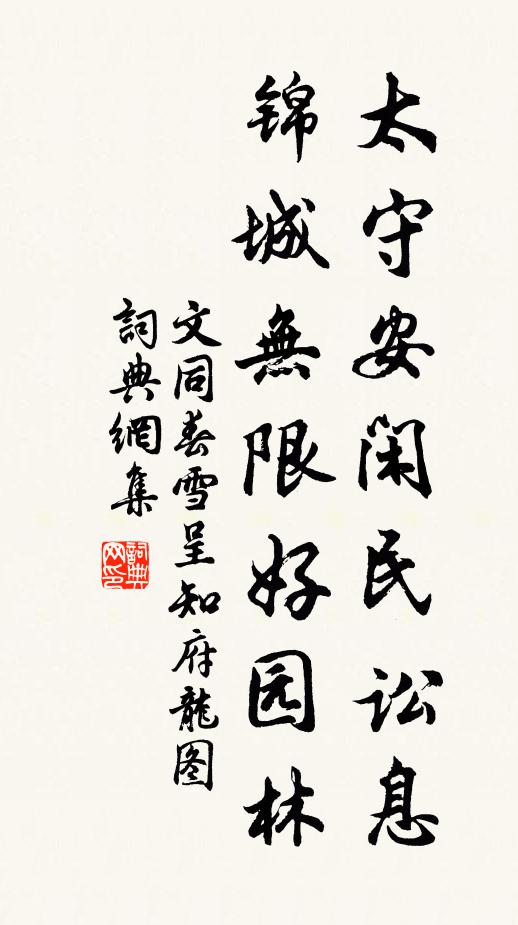 太守安闲民讼息
锦城無限好园林
文同春雪呈知府龍图
詞典網集
詞典网印